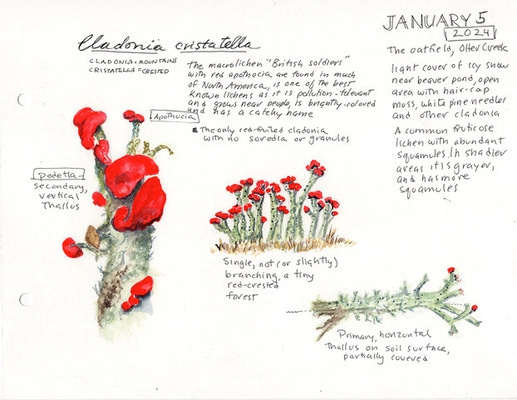 Cladonia cristatella
CLADONIA = MOUNTAINS
CRISTATELLA = CRESTED
The macrolichen "British soldiers"
with red apothecia are found in much
of North America, is one of the best
known lichens as it is pollution-tolerant
and grows near people, is brightly-colored
and has a catchy name
The only red-fruited cladonia
with no soredia or granules
Apothecia
podetia
secondary,
vertical
Thallus
Single, not (or slightly)
branching, a tiny
red-crested
forest
Primary, horizontal
Thallus on soil surface,
partially covered
JANUARY 5
2024
The oatfield, Otter Creek
light cover of icy snow
near beaver pond, open
area with hair-cap
moss, white pine needles
and other cladonia
A common fruticose
lichen with abundant
squamules. In shadier
areas it is grayer,
and has more
squamules